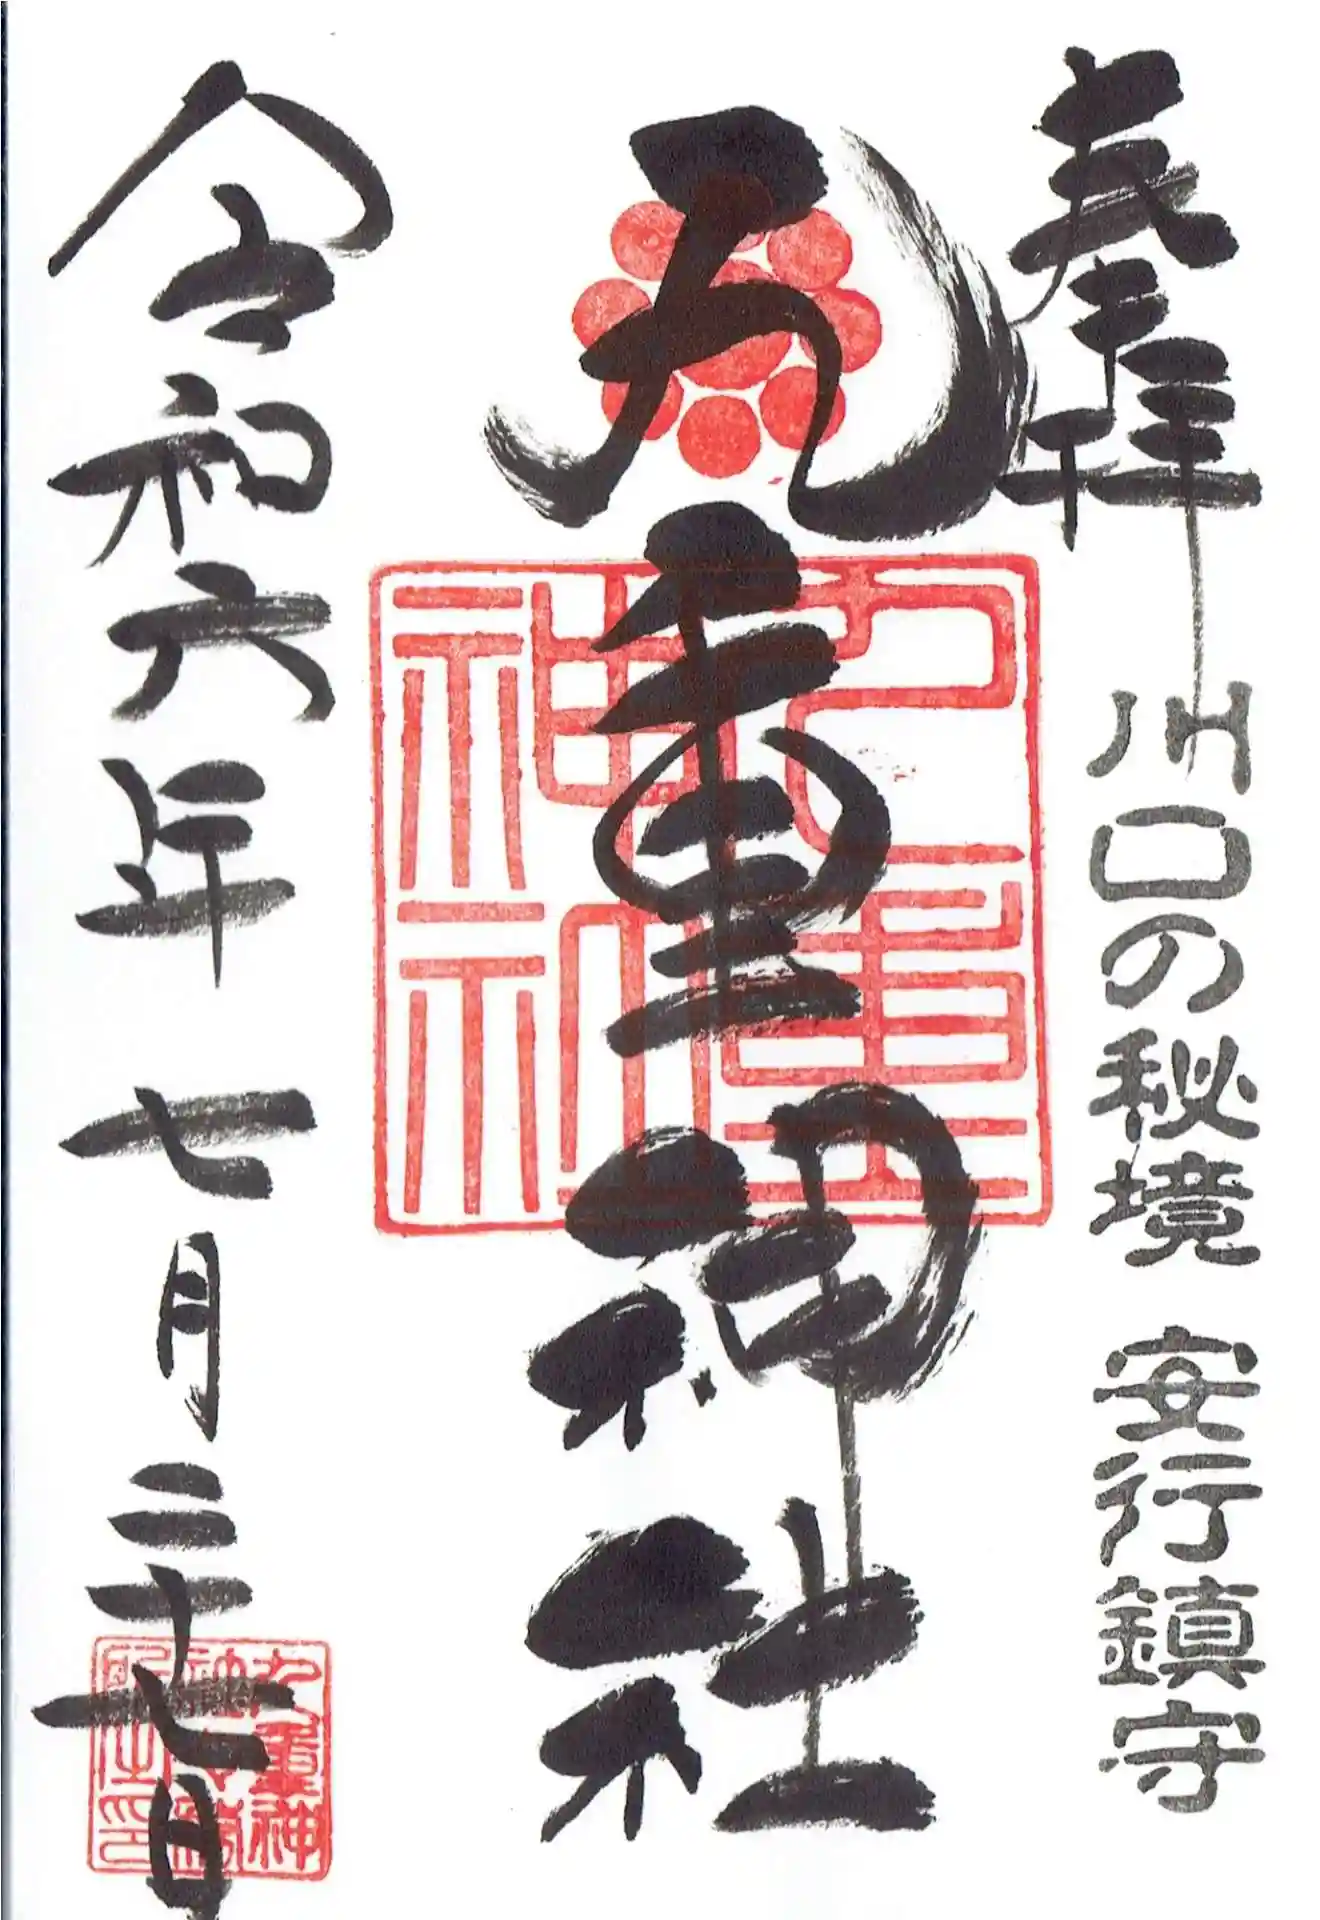 奉拝
川口の秘境 安行鎮守
九重神社
九重神社
令和六年 七月二十七日